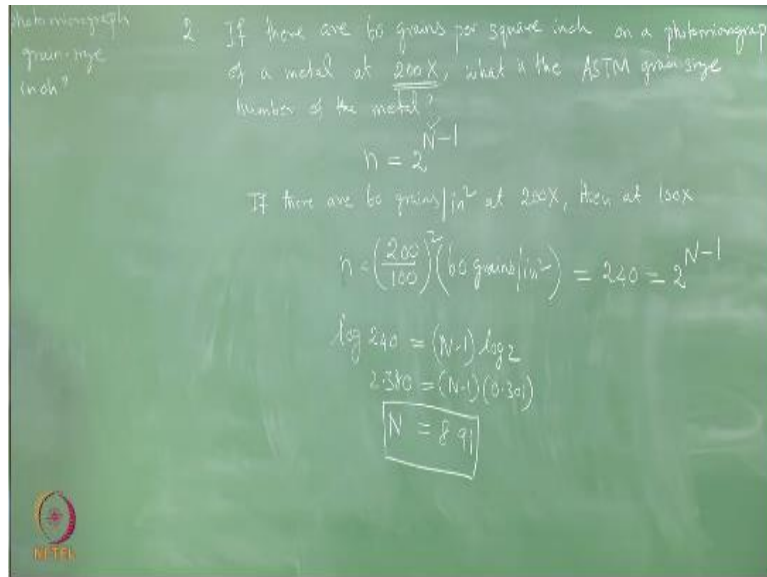 photomicrograph
grain-size
inch?
2 If there are 60 grains per square inch on a photomicrograp
of a metal at 200X, what is the ASTM grain size
number of the metal?
n = 2^{N-1}
If there are 60 grains/in² at 200X, then at 100X
n = (200/100)² (60 grains/in²) = 240 = 2^{N-1}
log 240 = (N-1) log 2
2.380 = (N-1)(0.301)
N = 8.91
NPTEL